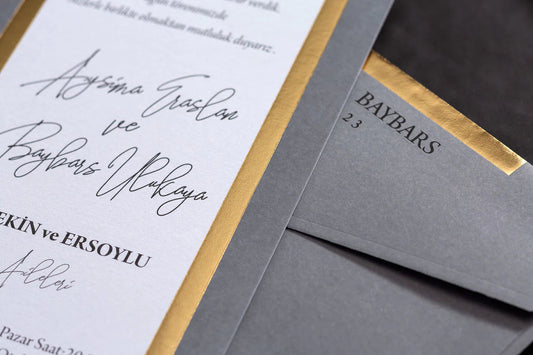 verdik.
törenimizde
birlikte olmaktan mutluluk duyarız.
Aysima Eraslan
ve
Baybars Ulukaya
EKİN ve ERSOYLU
Aileleri
Pazar Saat:20
BAYBARS
2 3